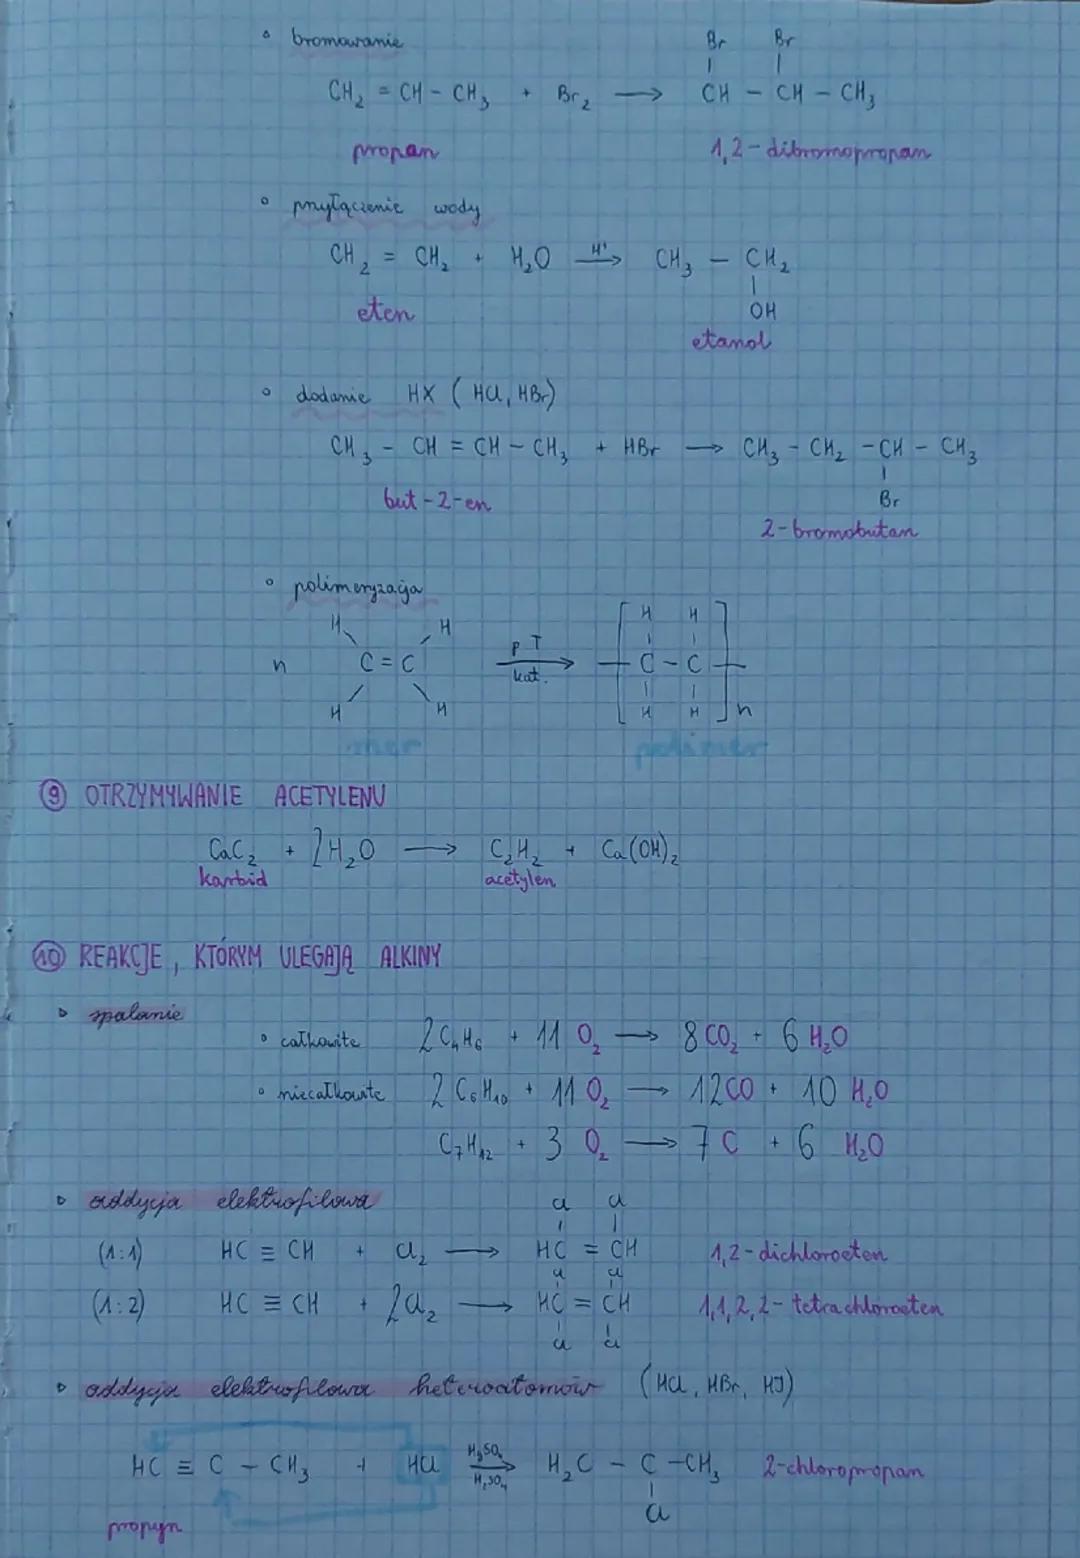 bromowanie
Br Br
CH₂ = CH - CH₃ + Br₂ → CH - CH - CH₃
propan 1,2-dibromopropan
przyłączenie wody
CH₂ = CH₂ + H₂O H⁺→ CH₃ - CH₂
eten OH
etanol
dodanie HX (HCl, HBr)
CH₃ - CH = CH - CH₃ + HBr → CH₃ - CH₂ - CH - CH₃
but-2-en Br
2-bromobutan
polimeryzacja
H H p T H H
n C = C kat. → C - C
H H H H n
mer polimer
9 OTRZYMYWANIE ACETYLENU
CaC₂ + 2H₂O → C₂H₂ + Ca(OH)₂
karbid acetylen
10 REAKCJE, KTÓRYM ULEGAJĄ ALKINY
spalanie
całkowite 2C₄H₆ + 11 O₂ → 8 CO₂ + 6 H₂O
niecałkowite 2 C₆H₁₀ + 11 O₂ → 12CO + 10 H₂O
C₇H₁₂ + 3 O₂ → 7 C + 6 H₂O
addycja elektrofilowa
Cl Cl
(1:1) HC ≡ CH + Cl₂ → HC = CH 1,2-dichloroeten
Cl Cl
(1:2) HC ≡ CH + 2Cl₂ → HC = CH 1,1,2,2-tetrachloroeten
Cl Cl
addycja elektrofilowa heteroatomów (HCl, HBr, HJ)
HC ≡ C - CH₃ + HCl HgSO₄ → H₂SO₄ H₂C - C - CH₃ 2-chloropropan
Cl
propyn